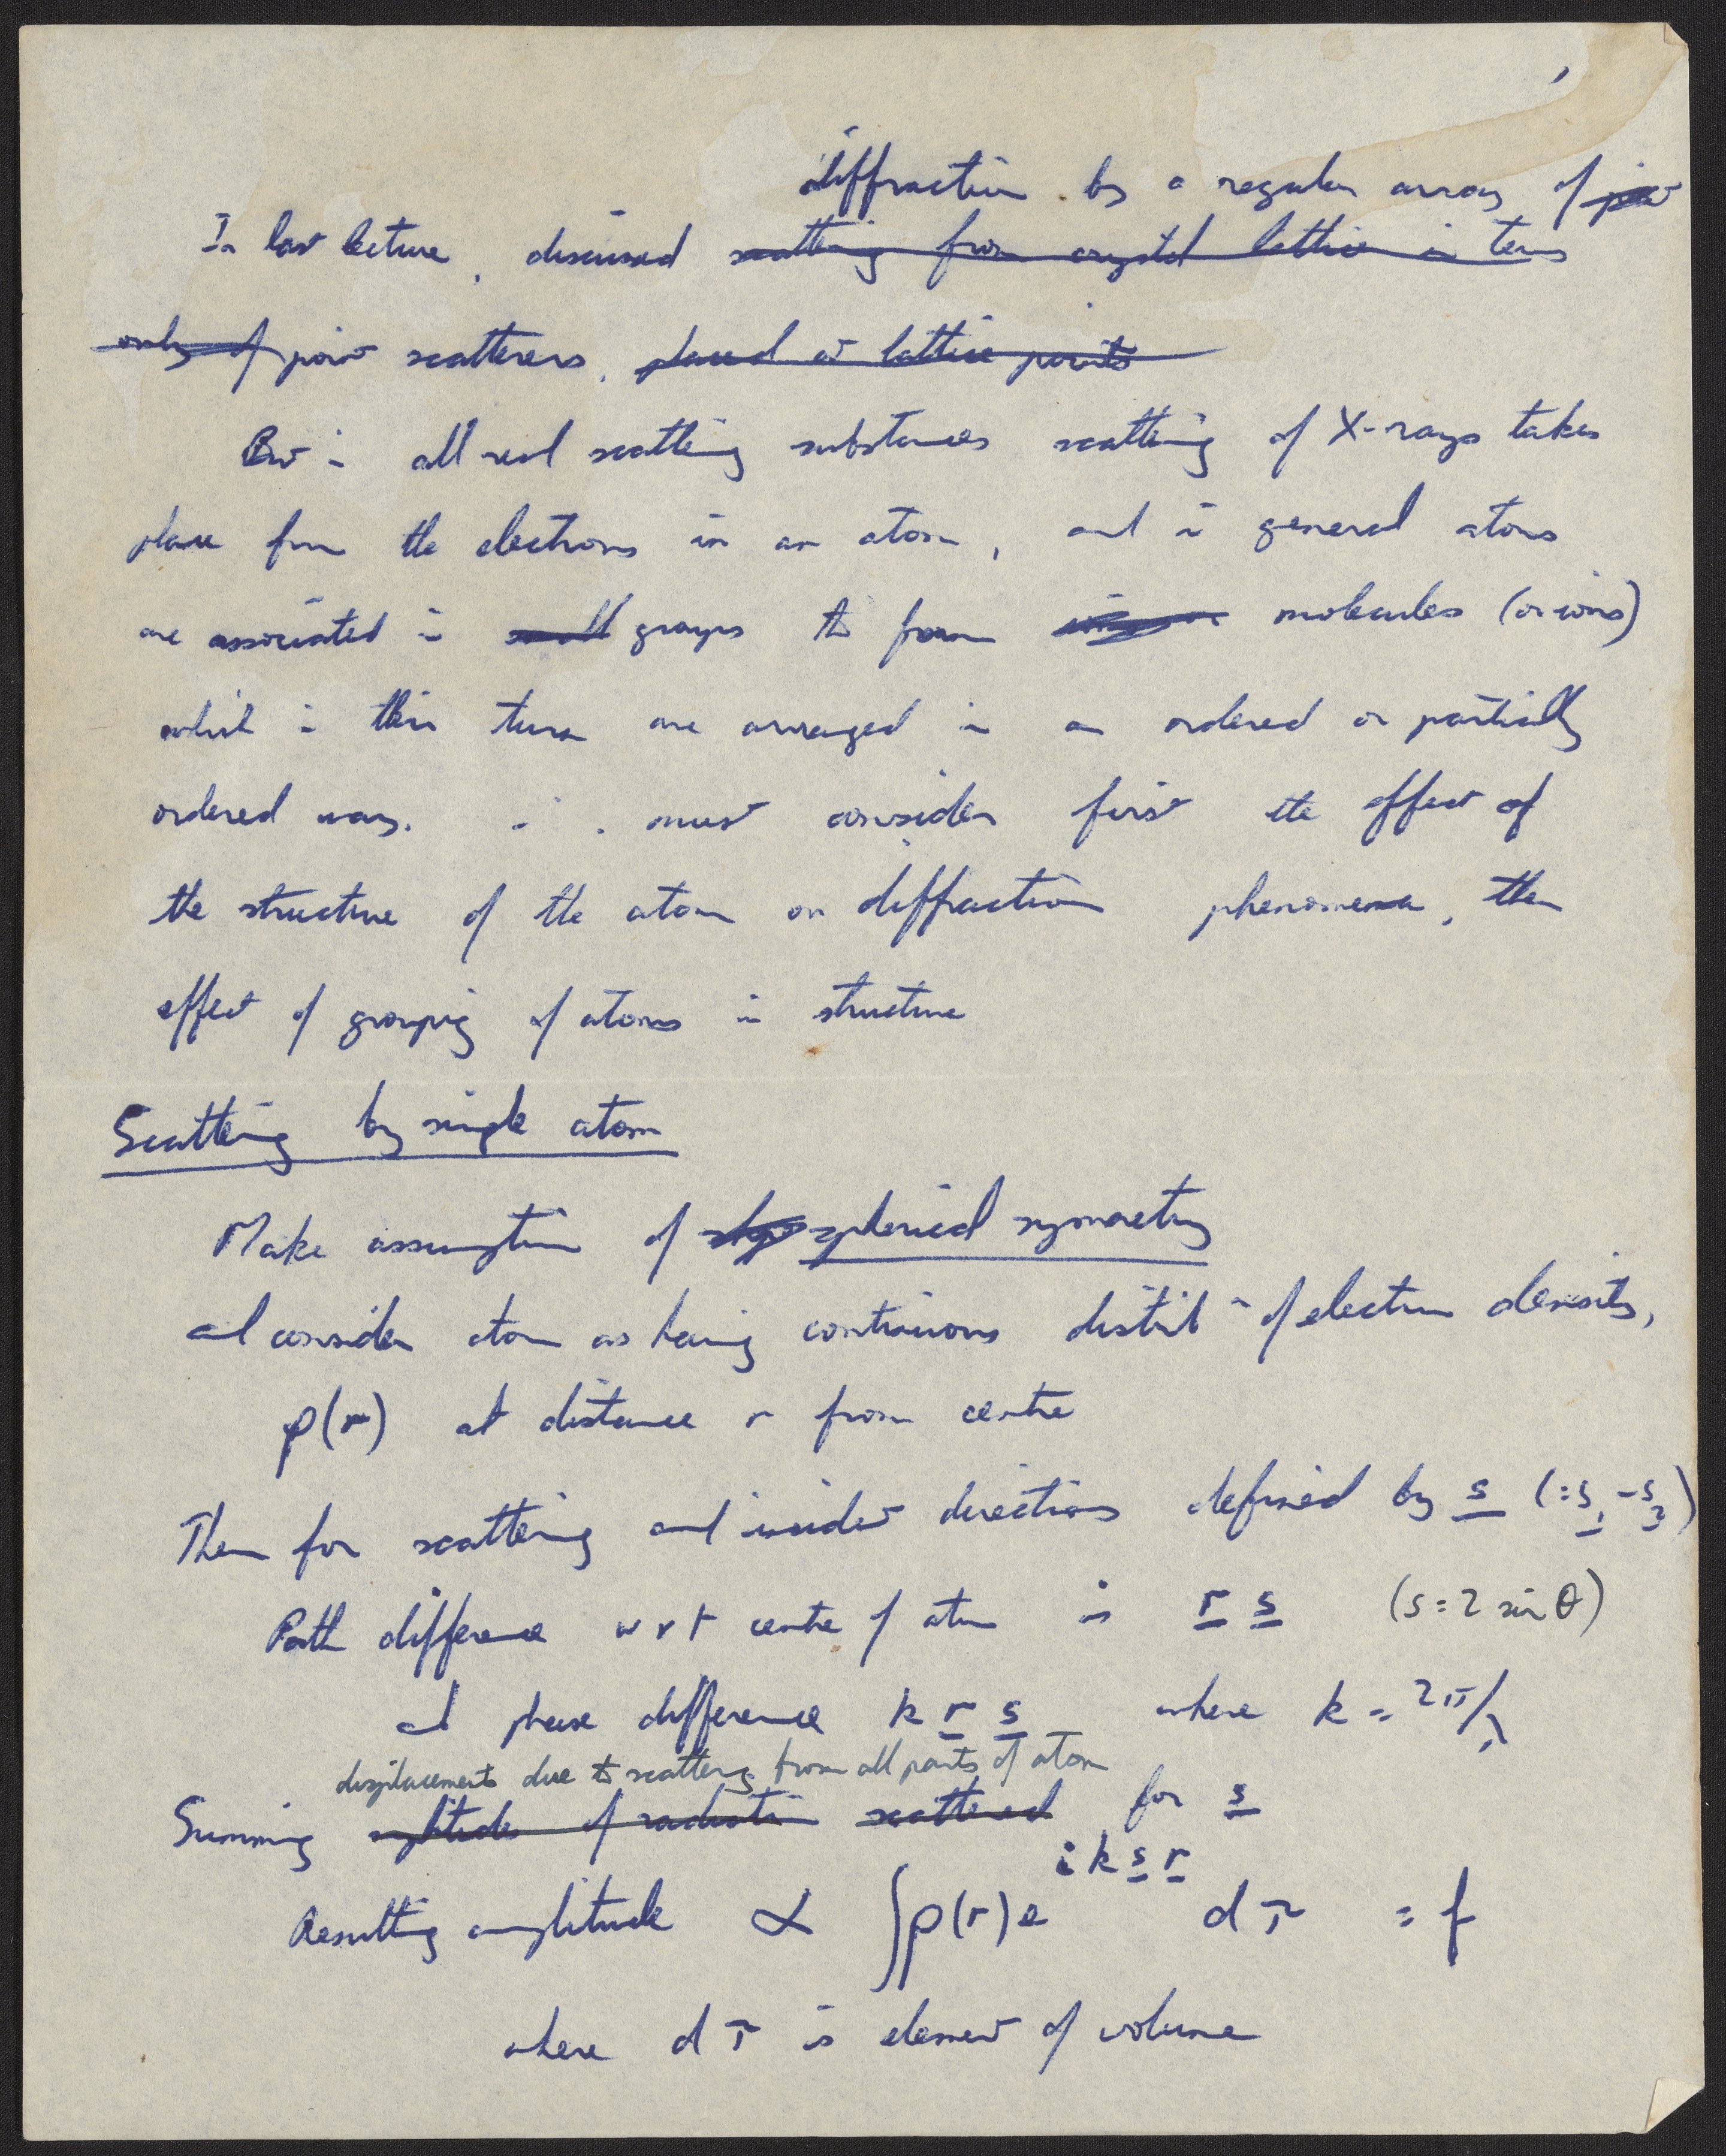 diffraction by a regular array of poin
In last lecture, discussed scattering from crystal lattice in terms
only of point scatterers, placed at lattice points
But in all real scattering substances scattering of X-rays takes
place from the electrons in an atom, and in general atoms
are associated in small groups to form molecules (or ions)
which in their turn are arranged in an ordered or partially
ordered way. ∴ must consider first the effect of
the structure of the atom on diffraction phenomena, then
effect of grouping of atoms in structure
Scattering by single atom
Make assumption of spherical symmetry
and consider atom as having continuous distribn of electron density,
ρ(r) at distance r from centre
Then for scattering and incident directions defined by s (=s1-s2)
Path difference w r t centre of atom is r s (s = 2 sin θ)
and phase difference k r s where k = 2π/λ
displacements due to scattering from all parts of atom
Summing amplitudes of radiation scattered for s
Resulting amplitude ∝ ∫ρ(r)e^{i k s r} dτ = f
where dτ is element of volume